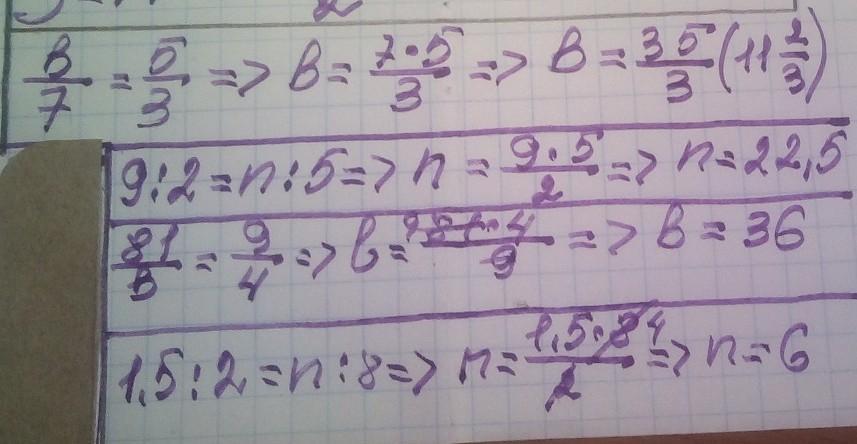 в/7 = 5/3 => в = 7·5/3 => в = 35/3 (11 2/3)
9:2=n:5=> n = 9·5/2 => n=22,5
81/в = 9/4 => в= 9 81·4/9 => в = 36
1,5:2=n:8=> n= 1,5·8 4/2 => n=6